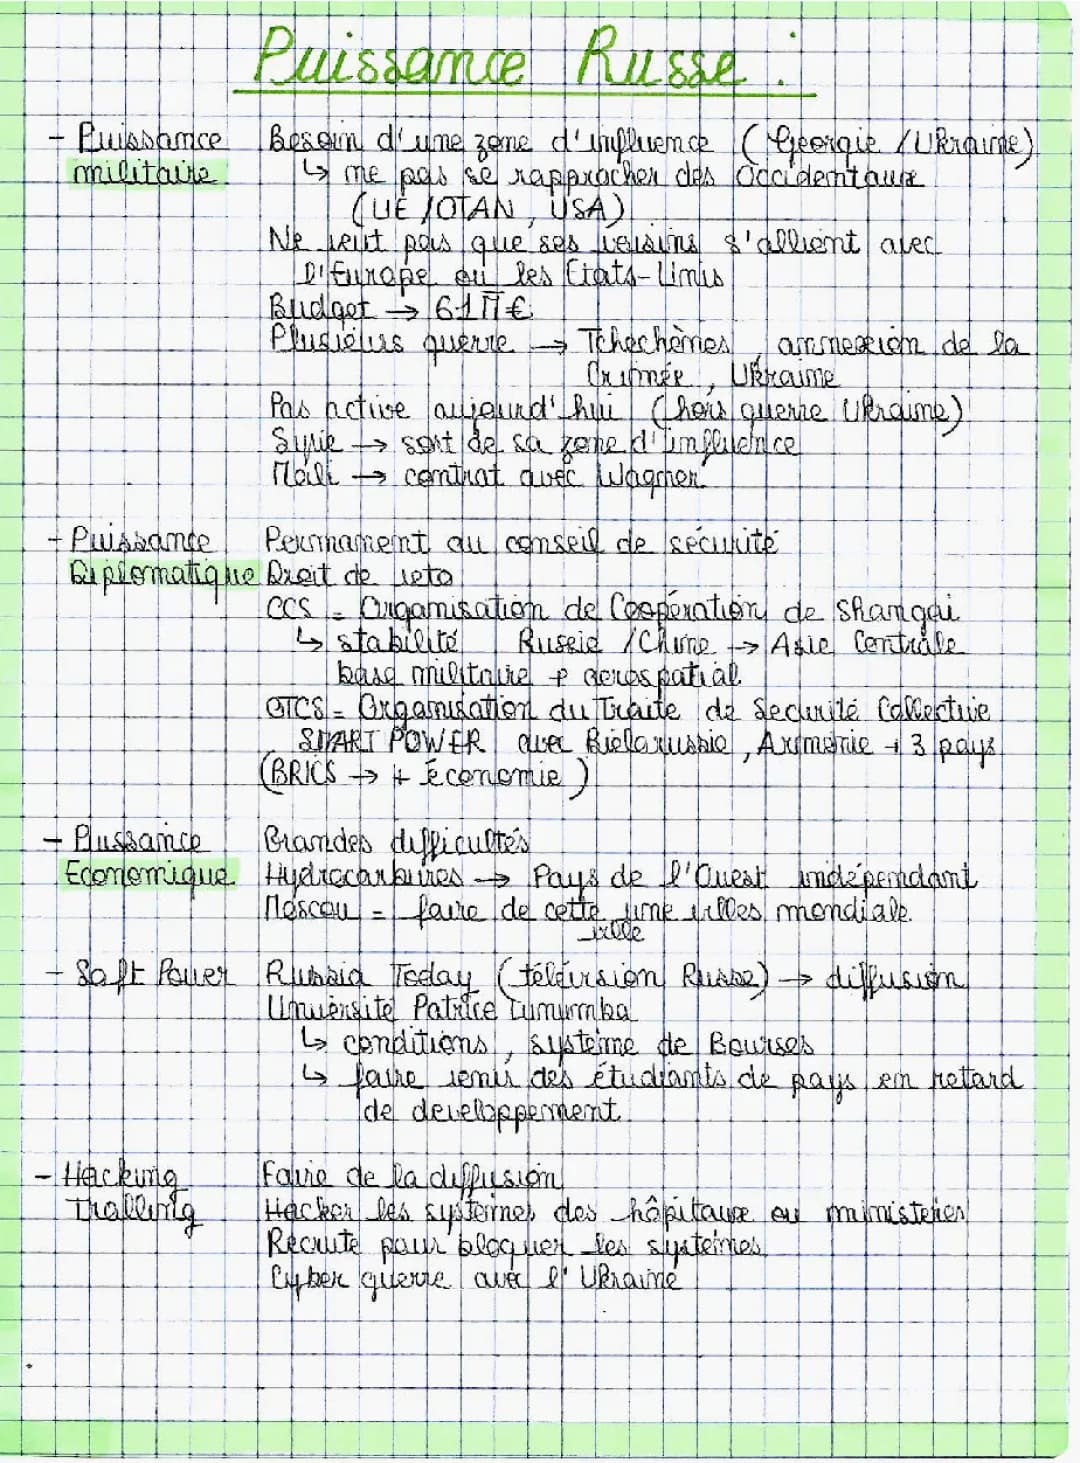 Puissance Russe :
- Puissance militaire Besoin d'une zone d'influence (Georgie / Ukraine)
↳ ne pas se rapprocher des Occidentaux
(UE / OTAN, USA)
Ne veut pas que ses voisins s'allient avec
l'Europe ou les Etats-Unis
Budget → 61 M€
Plusieurs guerre → Tchechènes, annexion de la
Crimée, Ukraine
Pas active aujourd'hui (hors guerre Ukraine)
Syrie → sort de sa zone d'influence
Mali → contrat avec Wagner
- Puissance Permanent au conseil de sécurité
Diplomatique Droit de veto
OCS = Organisation de Coopération de Shangai
↳ stabilité Russie / Chine → Asie Centrale
base militaire + aerospatial
OTCS = Organisation du Traite de Securité Collective
SMART POWER avec Bielorussie, Armenie + 3 pays
(BRICS → + économie)
- Puissance Grandes difficultés
Economique Hydrocarbures → Pays de l'Ouest indépendant
Moscou = faire de cette une villes mondiale
ville
- Soft Power Russia Today (télévision Russe) → diffusion
Université Patrice Lumumba
↳ conditions, système de Bourses
↳ faire venir des étudiants de pays en retard
de developpement
- Hacking Faire de la diffusion
Trolling Hacker les systèmes des hôpitaux ou ministeres
Recruté pour bloquer les systèmes
Cyber guerre avec l'Ukraine